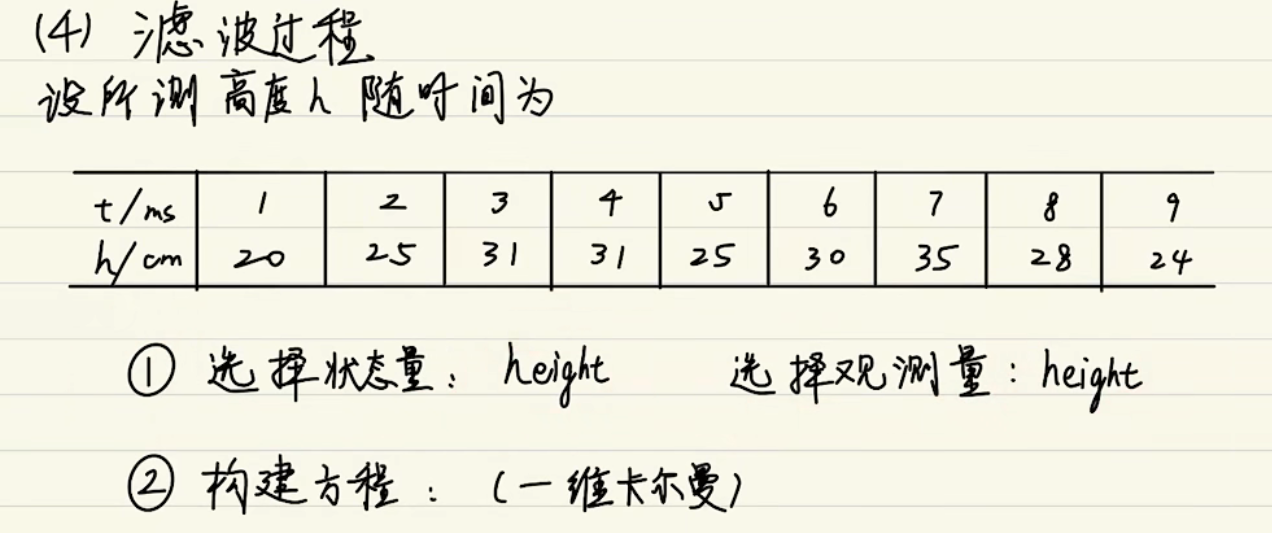 (4) 滤波过程
设所测高度h 随时间为
t/ms 1 2 3 4 5 6 7 8 9
h/cm 20 25 31 31 25 30 35 28 24
① 选择状态量： height 选择观测量：height
② 构建方程：（一维卡尔曼）